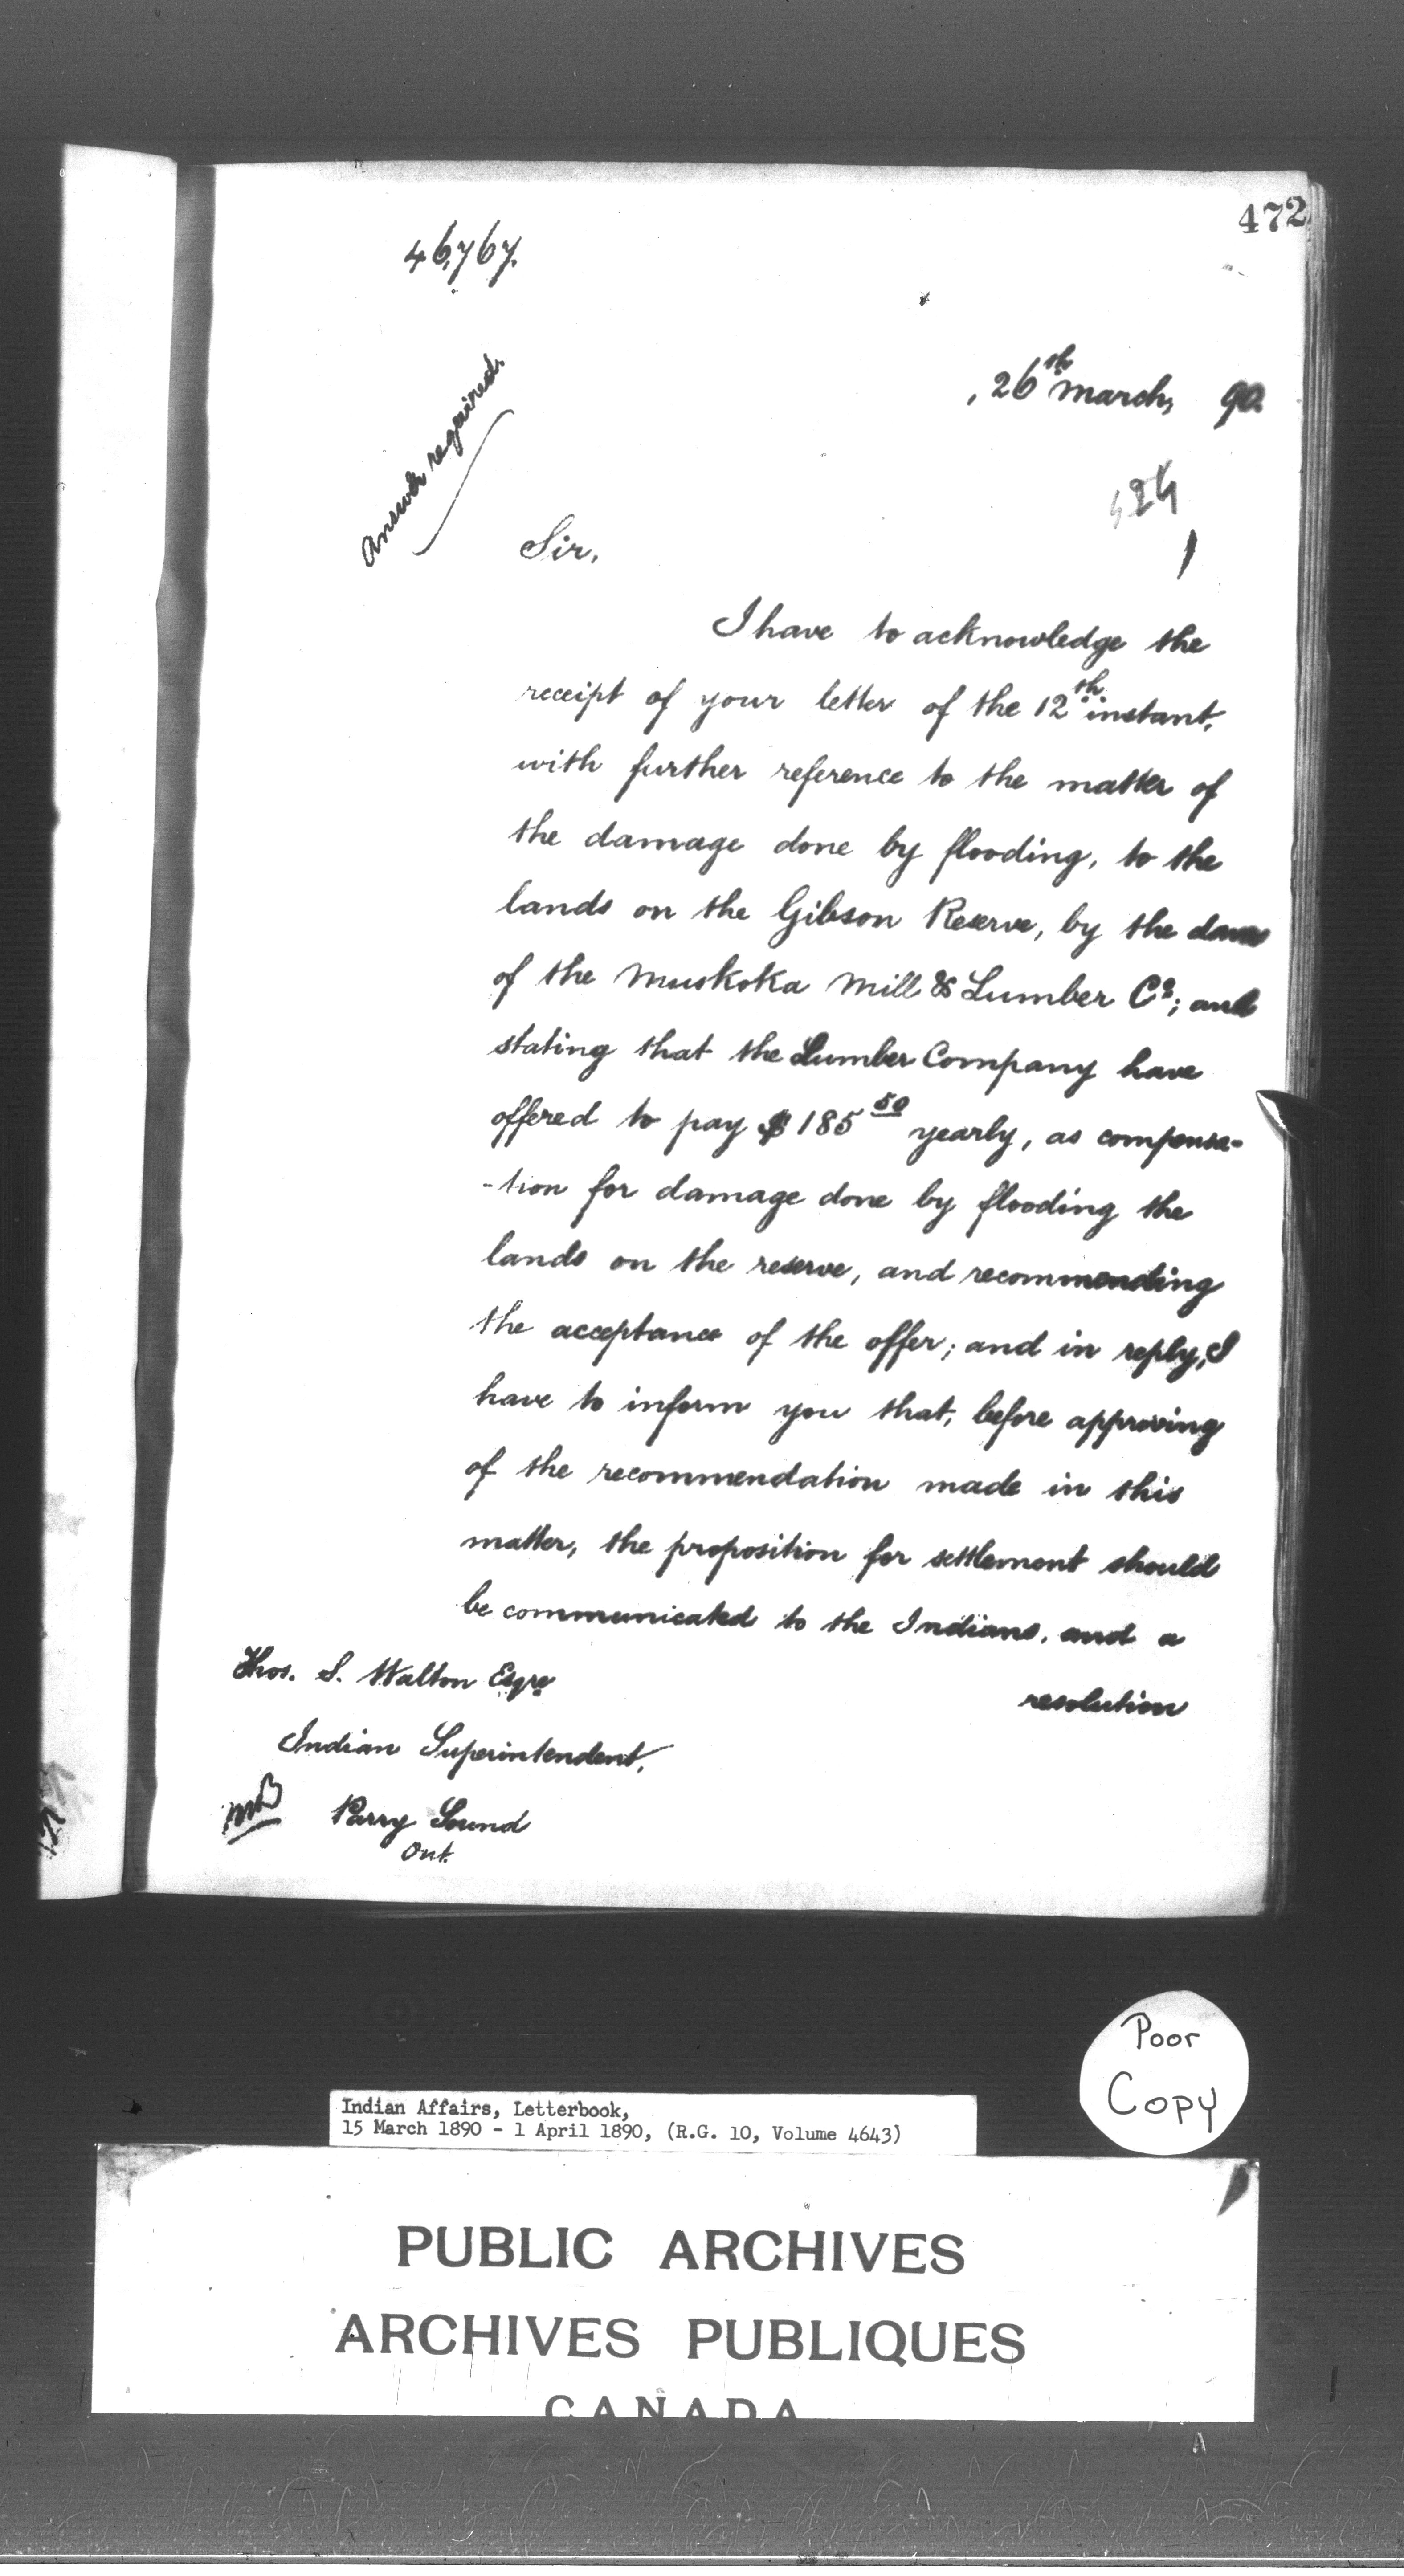 472
46,767.
26th March, 90.
Answer required.
Sir,
I have to acknowledge the
receipt of your letter of the 12th instant,
with further reference to the matter of
the damage done by flooding, to the
lands on the Gibson Reserve, by the dams
of the Muskoka Mill & Lumber Co; and
stating that the Lumber Company have
offered to pay $185 50 yearly, as compensa-
-tion for damage done by flooding the
lands on the reserve, and recommending
the acceptance of the offer; and in reply, I
have to inform you that, before approving
of the recommendation made in this
matter, the proposition for settlement should
be communicated to the Indians, and a
resolution
Thos. S. Walton Esqre
Indian Superintendent,
Parry Sound
Ont.
Poor
Copy
Indian Affairs, Letterbook,
15 March 1890 - 1 April 1890, (R.G. 10, Volume 4643)
PUBLIC ARCHIVES
ARCHIVES PUBLIQUES
CANADA